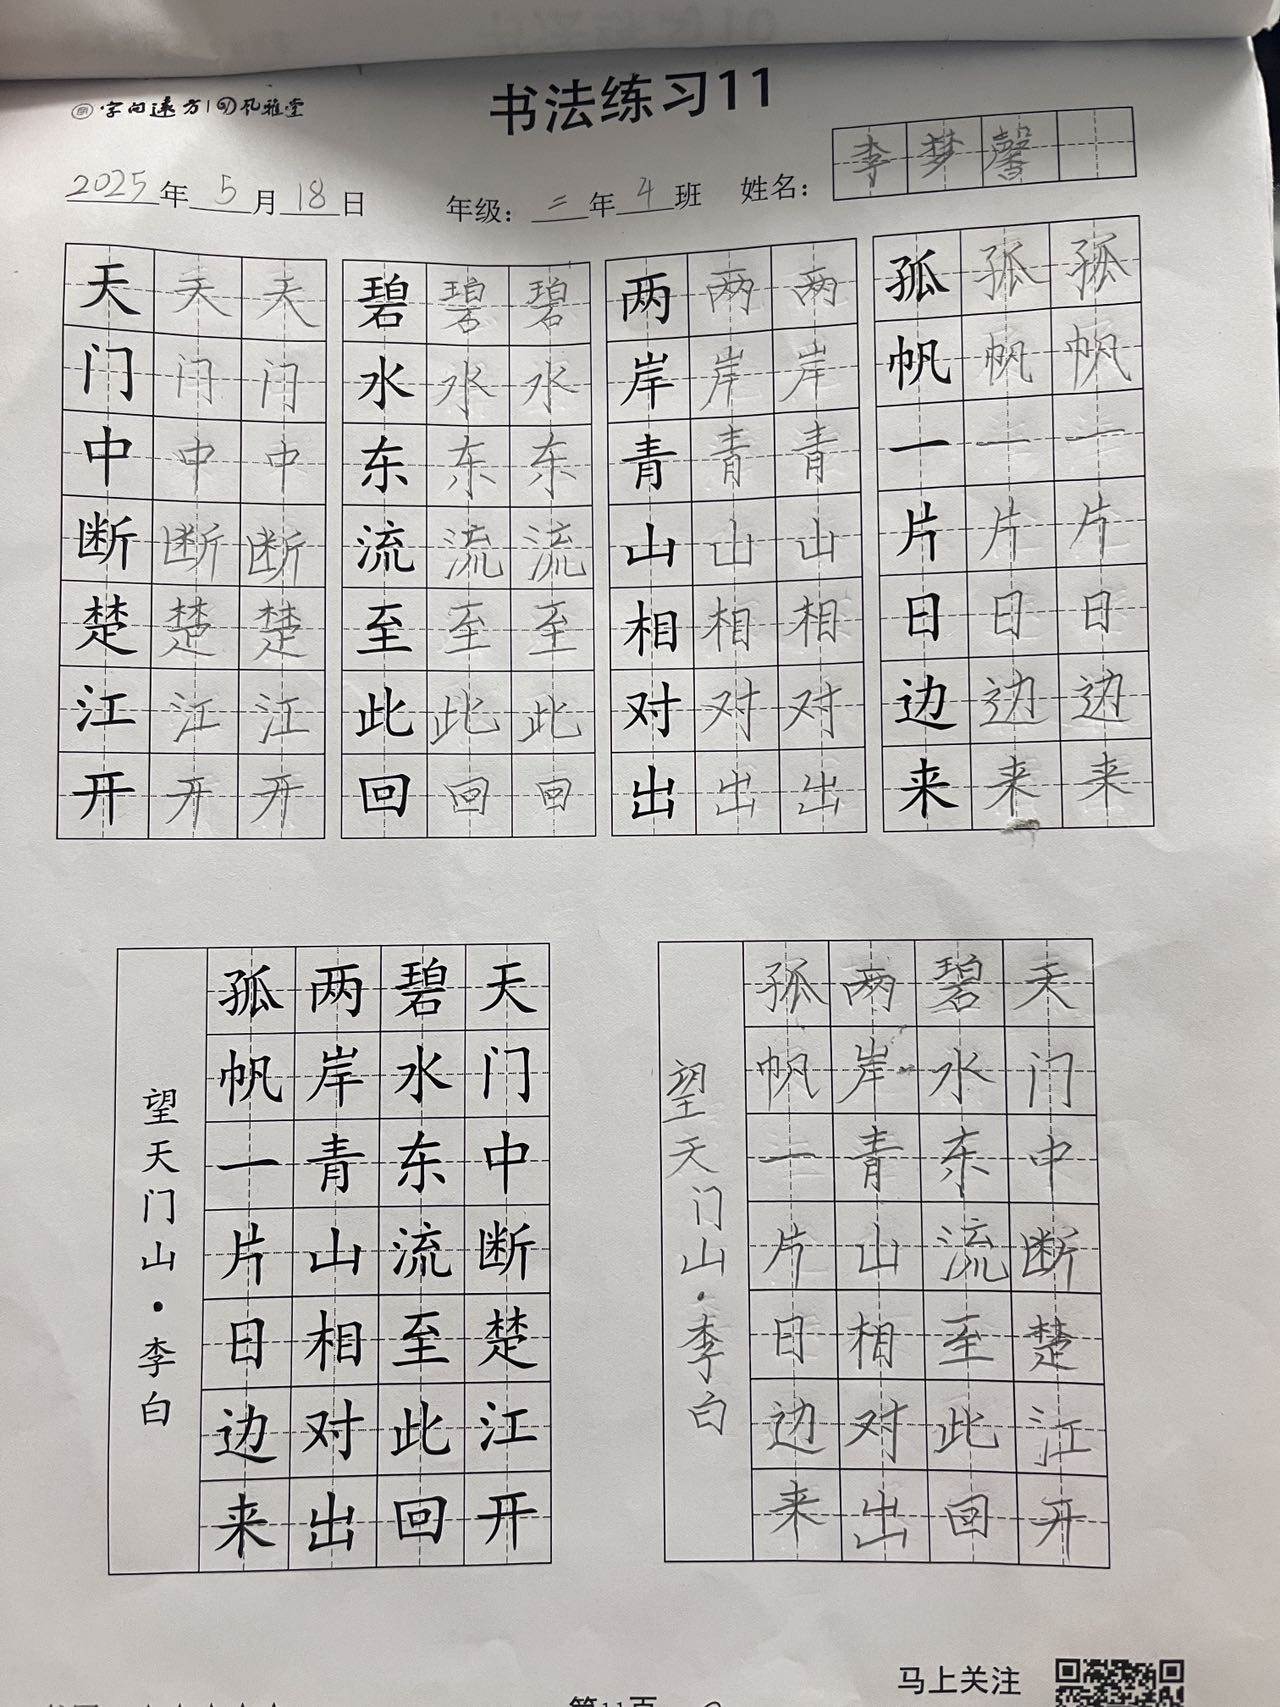 字向远方 风雅堂
书法练习11
2025年5月18日 年级：二年4班 姓名：李梦馨
天天天 碧碧碧 两两两 孤孤孤
门门门 水水水 岸岸岸 帆帆帆
中中中 东东东 青青青 一一一
断断断 流流流 山山山 片片片
楚楚楚 至至至 相相相 日日日
江江江 此此此 对对对 边边边
开开开 回回回 出出出 来来来
天门中断楚江开
碧水东流至此回
两岸青山相对出
孤帆一片日边来
望天门山·李白
天门中断楚江开
碧水东流至此回
两岸青山相对出
孤帆一片日边来
望天门山·李白
马上关注
第11页